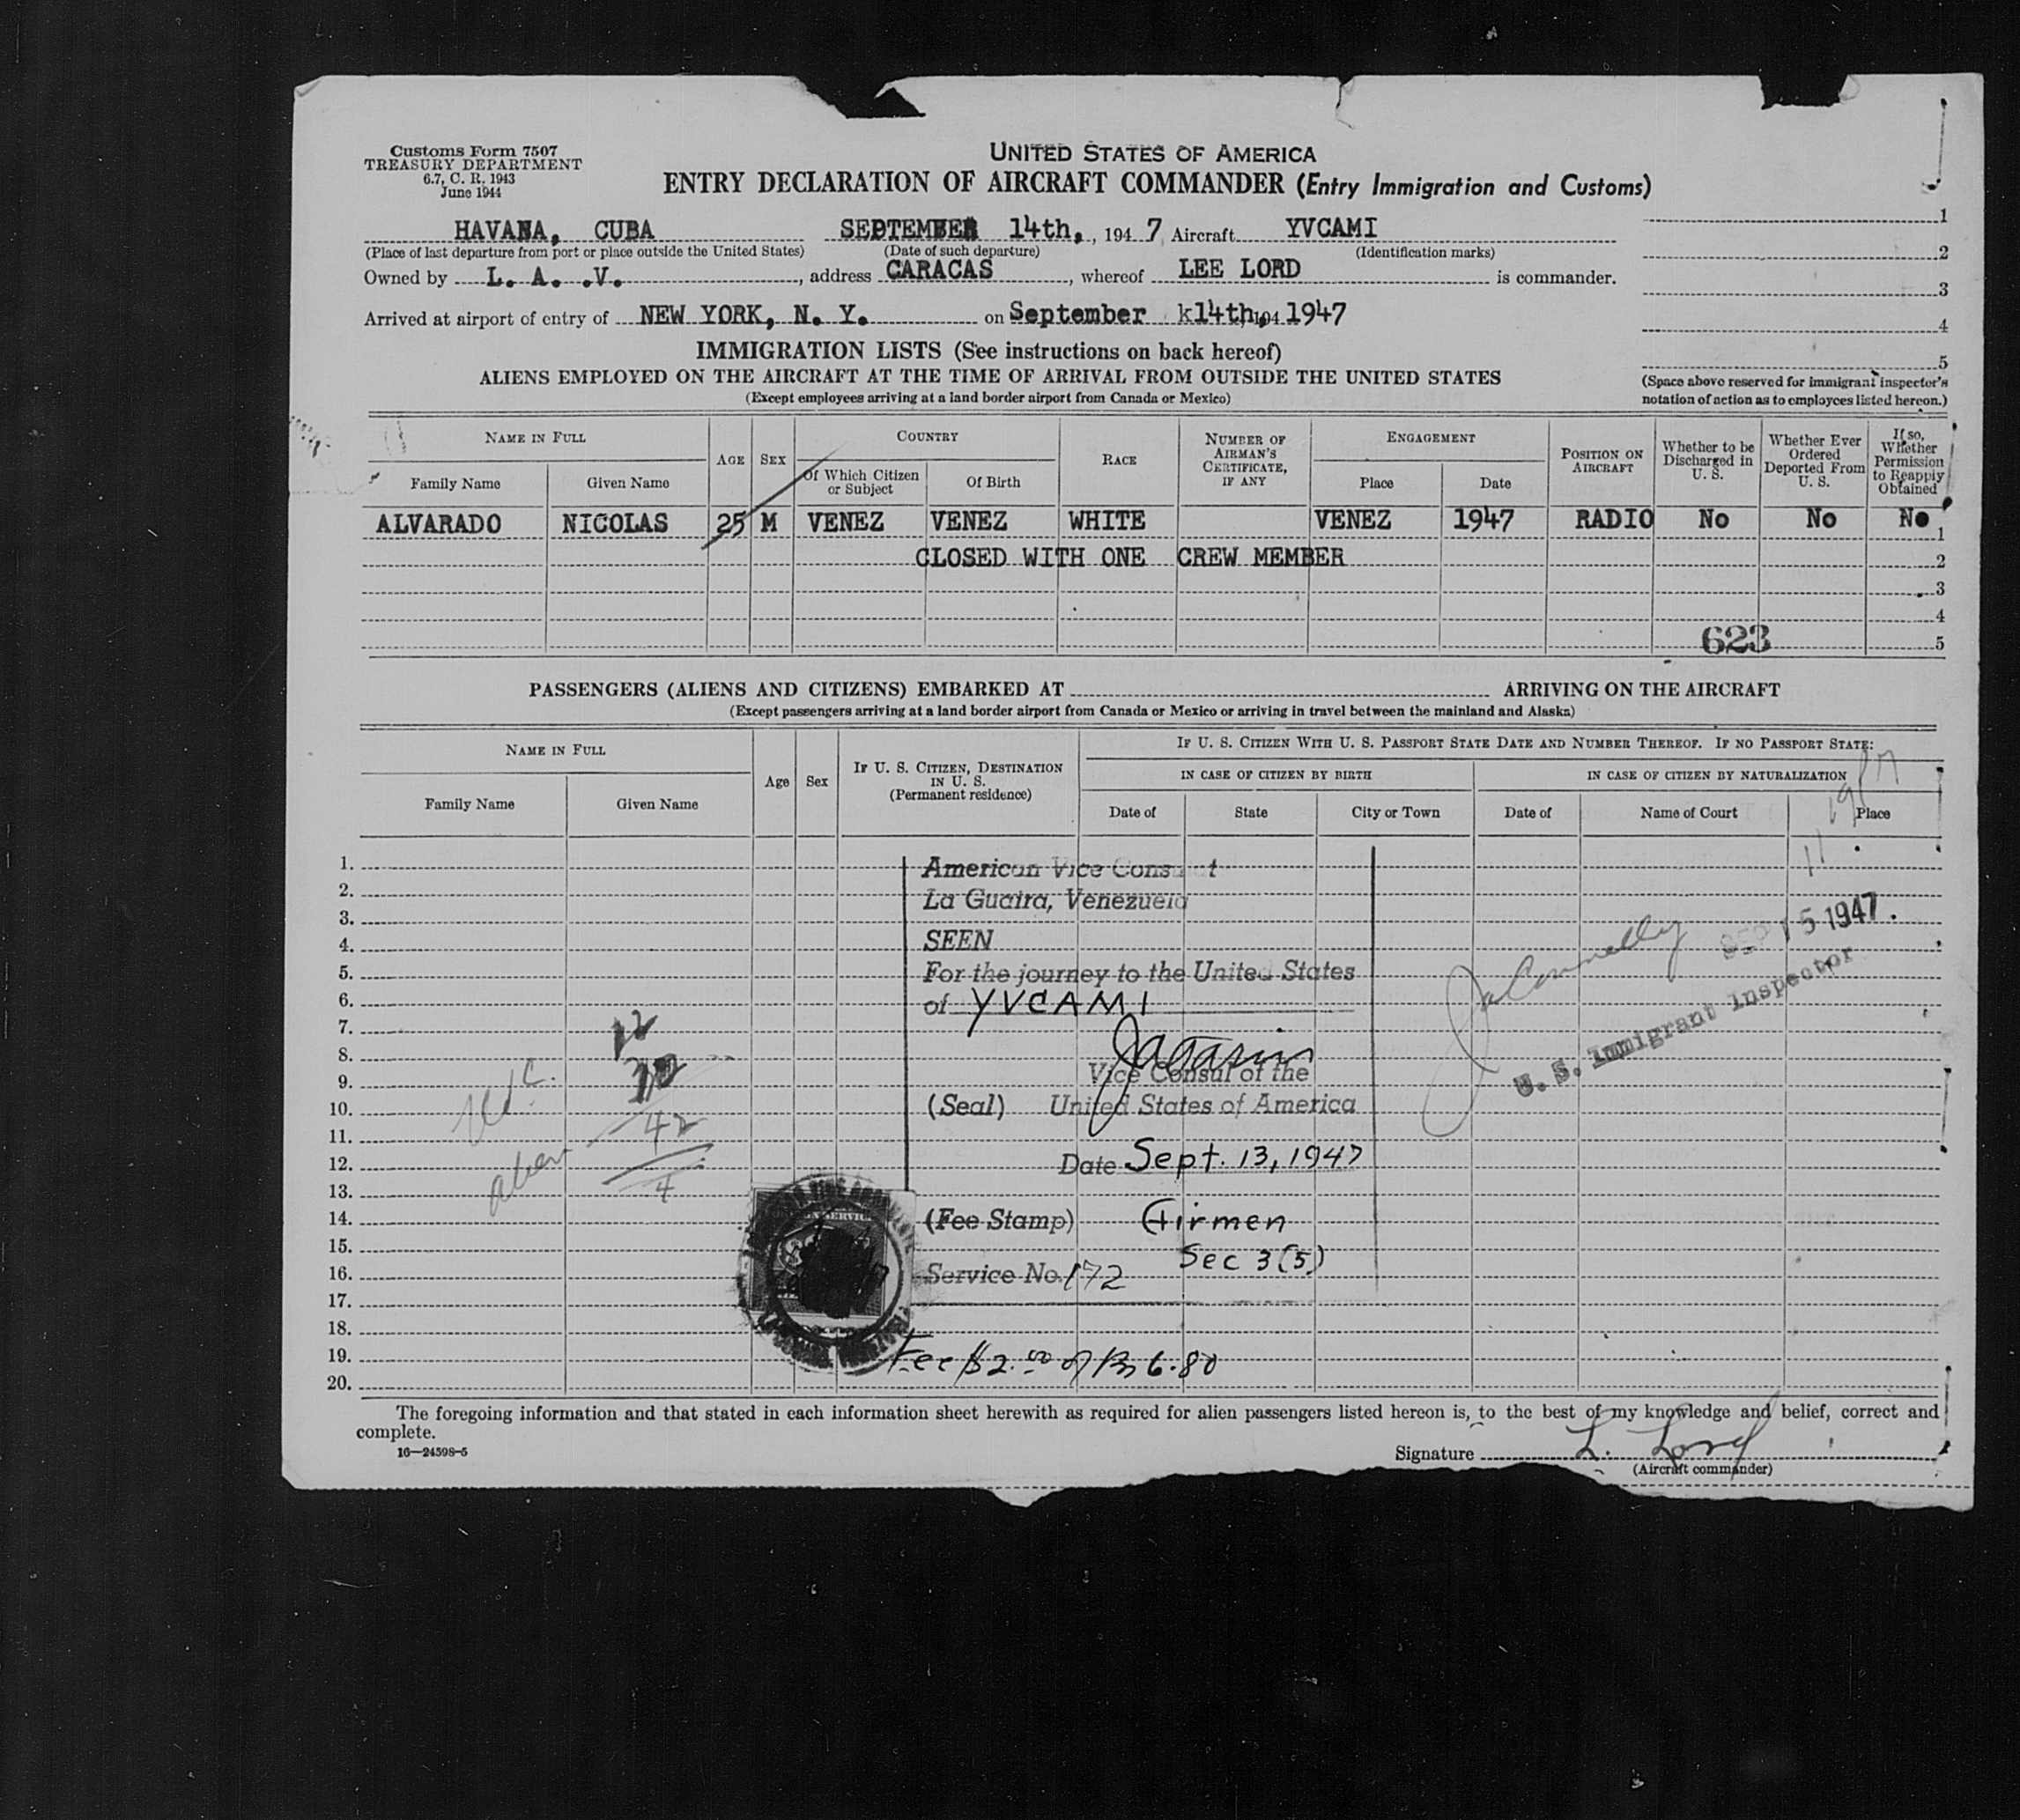 Customs Form 7507
TREASURY DEPARTMENT
6.7, C. R. 1943
June 1944
UNITED STATES OF AMERICA
ENTRY DECLARATION OF AIRCRAFT COMMANDER (Entry Immigration and Customs)
HAVANA, CUBA SEPTEMBER 14th, , 194 7 Aircraft YVCAMI
(Place of last departure from port or place outside the United States) (Date of such departure) (Identification marks)
Owned by L. A. .V. , address CARACAS , whereof LEE LORD is commander.
Arrived at airport of entry of NEW YORK, N. Y. on September k14th, 194 1947
1
2
3
4
5
(Space above reserved for immigrant inspector's
notation of action as to employees listed hereon.)
IMMIGRATION LISTS (See instructions on back hereof)
ALIENS EMPLOYED ON THE AIRCRAFT AT THE TIME OF ARRIVAL FROM OUTSIDE THE UNITED STATES
(Except employees arriving at a land border airport from Canada or Mexico)
NAME IN FULL AGE SEX COUNTRY RACE NUMBER OF AIRMAN'S CERTIFICATE, IF ANY ENGAGEMENT POSITION ON AIRCRAFT Whether to be Discharged in U. S. Whether Ever Ordered Deported From U. S. If so, Whether Permission to Reapply Obtained
Family Name Given Name Of Which Citizen or Subject Of Birth Place Date
ALVARADO NICOLAS 25 M VENEZ VENEZ WHITE VENEZ 1947 RADIO No No No 1
CLOSED WITH ONE CREW MEMBER 2
3
4
623 5
PASSENGERS (ALIENS AND CITIZENS) EMBARKED AT ARRIVING ON THE AIRCRAFT
(Except passengers arriving at a land border airport from Canada or Mexico or arriving in travel between the mainland and Alaska)
NAME IN FULL Age Sex IF U. S. CITIZEN, DESTINATION IN U. S. (Permanent residence) IF U. S. CITIZEN WITH U. S. PASSPORT STATE DATE AND NUMBER THEREOF. IF NO PASSPORT STATE:
IN CASE OF CITIZEN BY BIRTH IN CASE OF CITIZEN BY NATURALIZATION
Family Name Given Name Date of State City or Town Date of Name of Court Place
1.
2.
3.
4.
5.
6.
7.
8.
9.
10.
11.
12.
13.
14.
15.
16.
17.
18.
19.
20.
American Vice
La Guaira, Venezuela
SEEN
For the journey to the United States
of YVCAMI
Vice Consul of the
(Seal) United States of America
Date Sept. 13, 1947
(Fee Stamp) Airmen
Sec 3(5)
Service No. 172
Fee $2.00 of Bs 6.80
12
30
42
4
alien
SEP 15 1947
U. S. Immigrant Inspector
The foregoing information and that stated in each information sheet herewith as required for alien passengers listed hereon is, to the best of my knowledge and belief, correct and
complete.
16—24598-5
Signature L. Lord
(Aircraft commander)